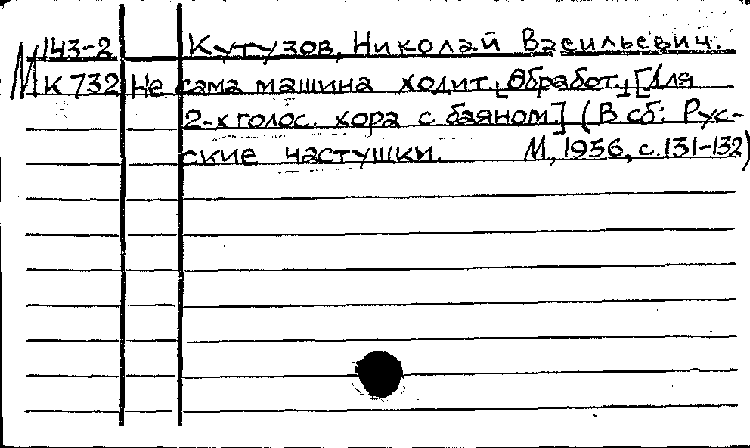 М 143-2 Кутузов, Николай Васильевич.
К 732 Не сама машина ходит. [Обработ.] [Для
2-х голос. хора с баяном] (В сб: Рус-
ские частушки. М., 1956, с. 131-132)